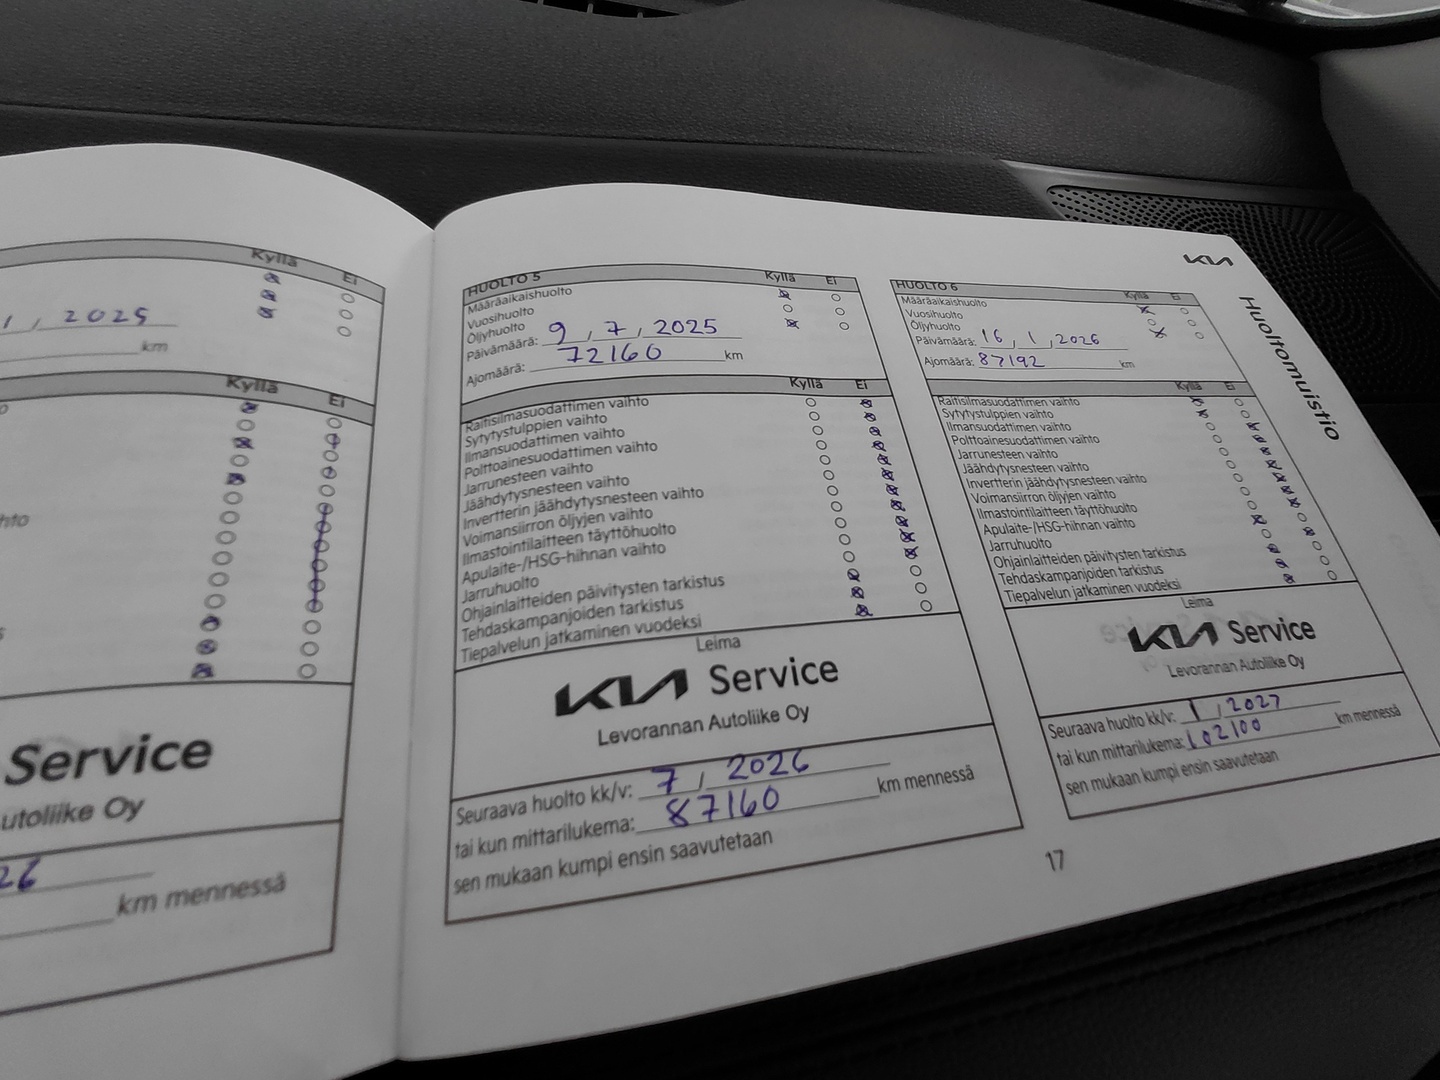 Kyllä Ei
1, 2025
km
Kyllä Ei
Service
Autoliike Oy
26
km mennessä
HUOLTO 5 Kyllä Ei
Määräaikaishuolto
Vuosihuolto
Öljyhuolto
Päivämäärä: 9, 7, 2025
Ajomäärä: 72160 km
Kyllä Ei
Raitisilmasuodattimen vaihto
Sytytystulppien vaihto
Ilmansuodattimen vaihto
Polttoainesuodattimen vaihto
Jarrunesteen vaihto
Jäähdytysnesteen vaihto
Invertterin jäähdytysnesteen vaihto
Voimansiirron öljyjen vaihto
Ilmastointilaitteen täyttöhuolto
Apulaite-/HSG-hihnan vaihto
Jarruhuolto
Ohjainlaitteiden päivitysten tarkistus
Tehdaskampanjoiden tarkistus
Tiepalvelun jatkaminen vuodeksi
Leima
KIA Service
Levorannan Autoliike Oy
Seuraava huolto kk/v: 7, 2026
tai kun mittarilukema: 87160 km mennessä
sen mukaan kumpi ensin saavutetaan
KIA
HUOLTO 6 Kyllä Ei
Määräaikaishuolto
Vuosihuolto
Öljyhuolto
Päivämäärä: 16, 1, 2026
Ajomäärä: 87192 km
Kyllä Ei
Raitisilmasuodattimen vaihto
Sytytystulppien vaihto
Ilmansuodattimen vaihto
Polttoainesuodattimen vaihto
Jarrunesteen vaihto
Jäähdytysnesteen vaihto
Invertterin jäähdytysnesteen vaihto
Voimansiirron öljyjen vaihto
Ilmastointilaitteen täyttöhuolto
Apulaite-/HSG-hihnan vaihto
Jarruhuolto
Ohjainlaitteiden päivitysten tarkistus
Tehdaskampanjoiden tarkistus
Tiepalvelun jatkaminen vuodeksi
Leima
KIA Service
Levorannan Autoliike Oy
Seuraava huolto kk/v: 1, 2027
tai kun mittarilukema: 102100 km mennessä
sen mukaan kumpi ensin saavutetaan
Huoltomuistio
17